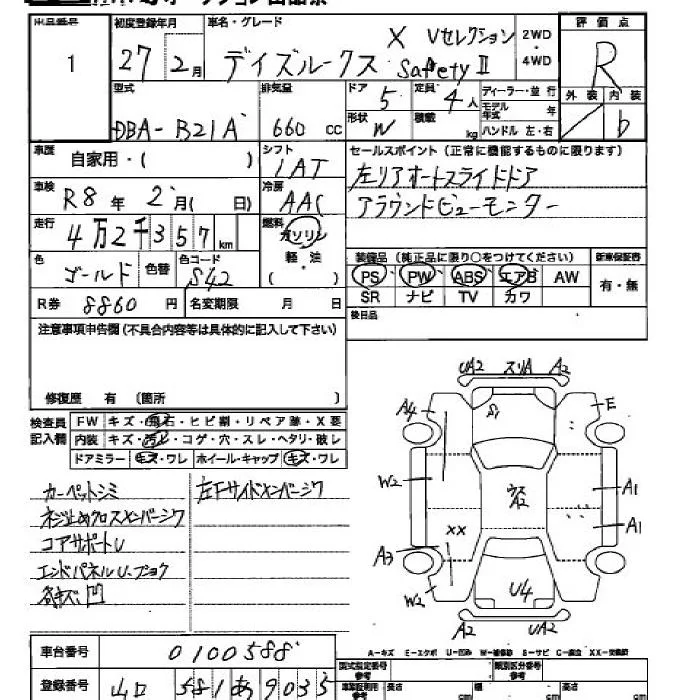 出品番号 初度登録年月 車名・グレード 評価点
1 27年 2月 デイズルークス X Vセレクション Safety II 2WD・4WD R
外装 内装 b
型式 排気量 ドア 定員 ディーラー・並行
DBA-B21A 660 cc 5 4人 モデル年式 年
形状 W 積載 kg ハンドル 左・右
車歴 自家用・( ) シフト 1AT セールスポイント (正常に機能するものに限ります)
左リアオートスライドドア
アラウンドビューモニター
車検 R8年 2月( 日) 冷房 AAC
走行 4万2千357km 燃料 ガソリン 軽・油 ( )
装備品 (純正品に限り○をつけてください) 新車保証書
色 ゴールド 色替 色コード S42 PS PW ABS エアB AW 有・無
SR ナビ TV カワ
R券 8860円 名変期限 月 日 後日品
注意事項申告欄 (不具合内容等は具体的に記入して下さい)
修復歴 有 〔箇所 〕
検査員記入欄 FW キズ・飛石・ヒビ割・リペア跡・X要
内装 キズ・汚レ・コゲ・穴・スレ・ヘタリ・破レ
ドアミラー キズ・ワレ ホイール・キャップ キズ・ワレ
カーペットシミ 左下サイドメンバーシワ
ネジ止めクロスメンバーシワ
コアサポートU
エンドパネルU、プヨク
各キズ、凹
UA2 スリA A2
A4 S1 E
W2 ウス A2 A1
A1
XX
A3
W2 U4
A2 UA2
A-キズ E-エクボ U-凹み W-補修跡 S-サビ C-腐食 XX-交換済
車台番号 0100588
登録番号 山口 581 あ 9035
型式指定番号 類別区分番号
長さ cm 幅 cm 高さ cm